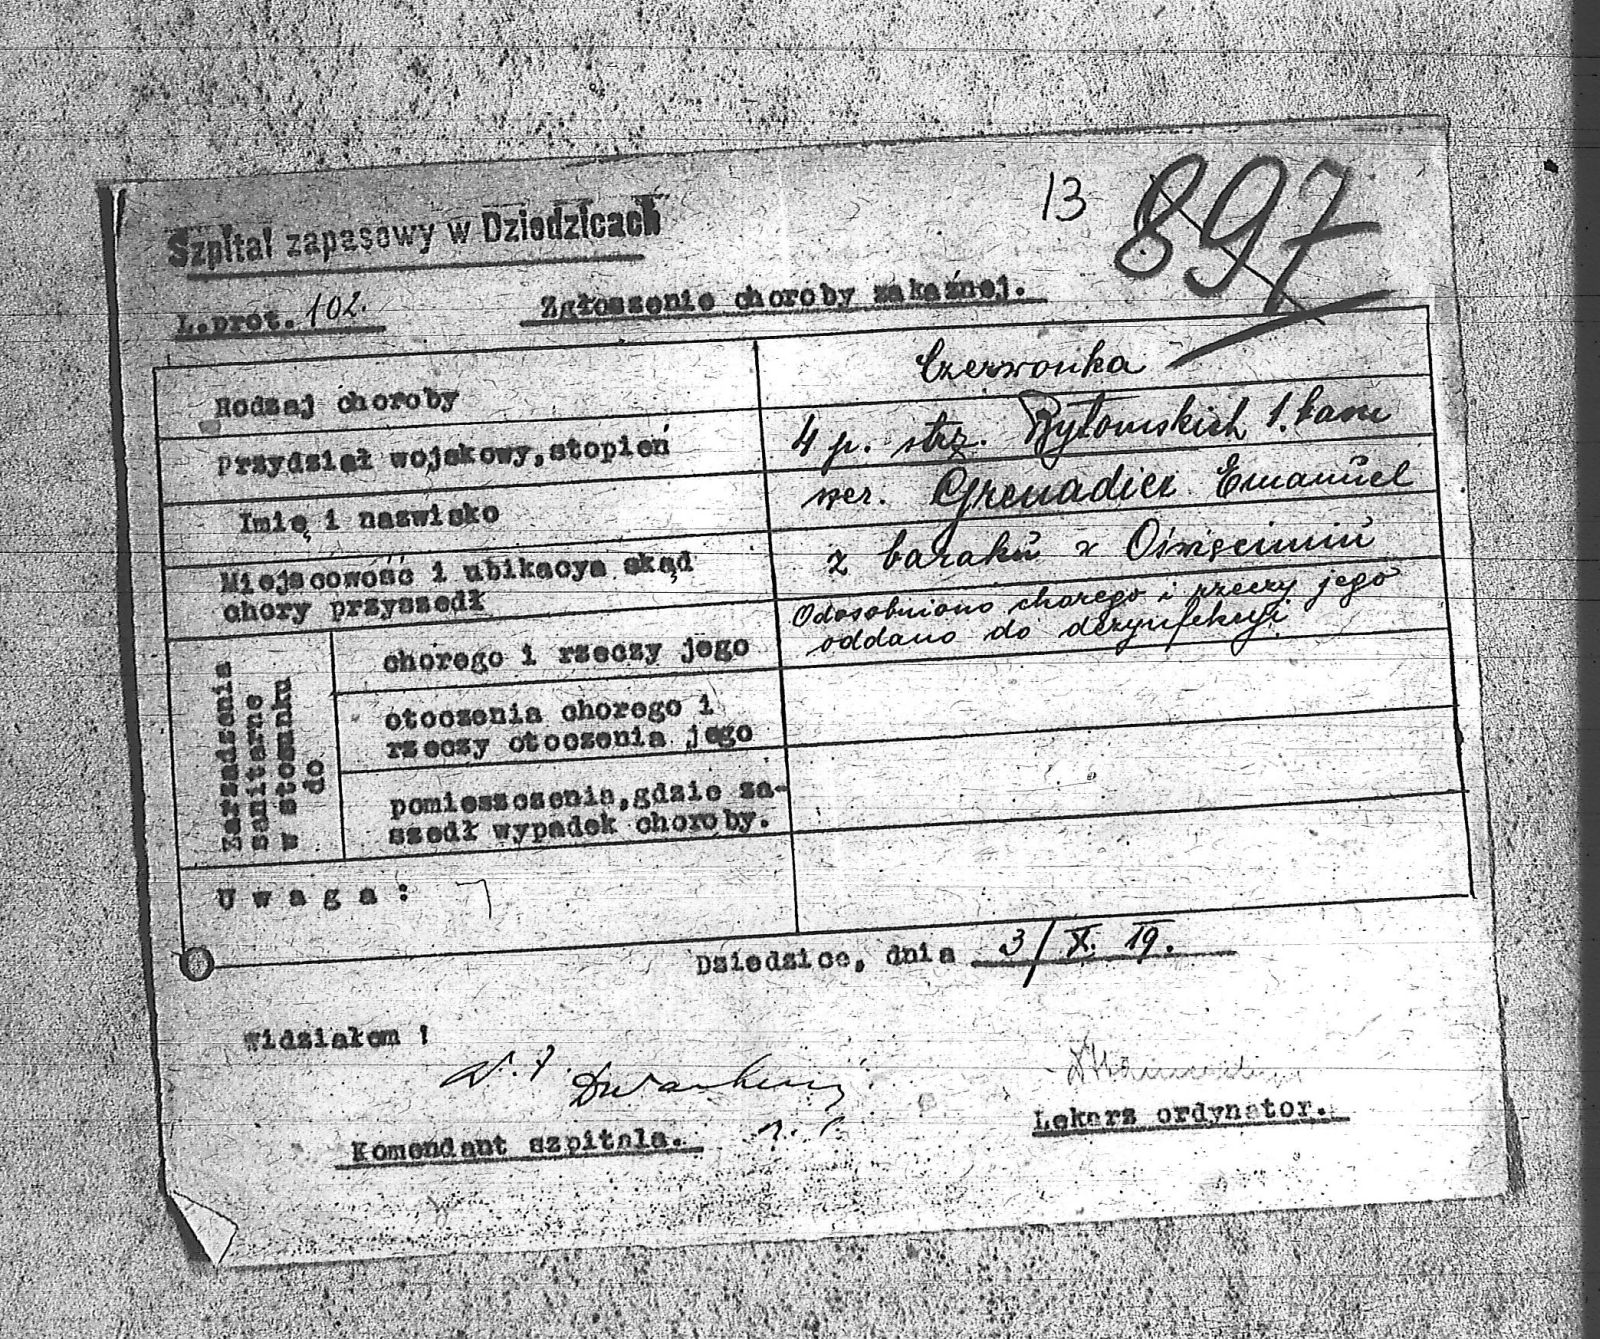 13 897
Szpital zapasowy w Dziedzicach
L.prot. 102.
Zgłoszenie choroby zakaźnej.
Rodzaj choroby
Czerwonka
Przydział wojskowy, stopień
4 p. strz. Bytomskich 1. kom
Imię i nazwisko
szer. Grenadier Emanuel
Miejscowość i ubikacya skąd
chory przyszedł
z baraku w Oświęcimiu
Zarządzenia
sanitarne
w stosunku
do
chorego i rzeczy jego
Odosobniono chorego i rzeczy jego
oddano do dezynfekcyi
otoczenia chorego i
rzeczy otoczenia jego
pomieszczenia, gdzie za-
szedł wypadek choroby.
Uwaga:
Dziedzice, dnia 3/X. 19.
Widziałem !
Komendant szpitala.
Lekarz ordynator.